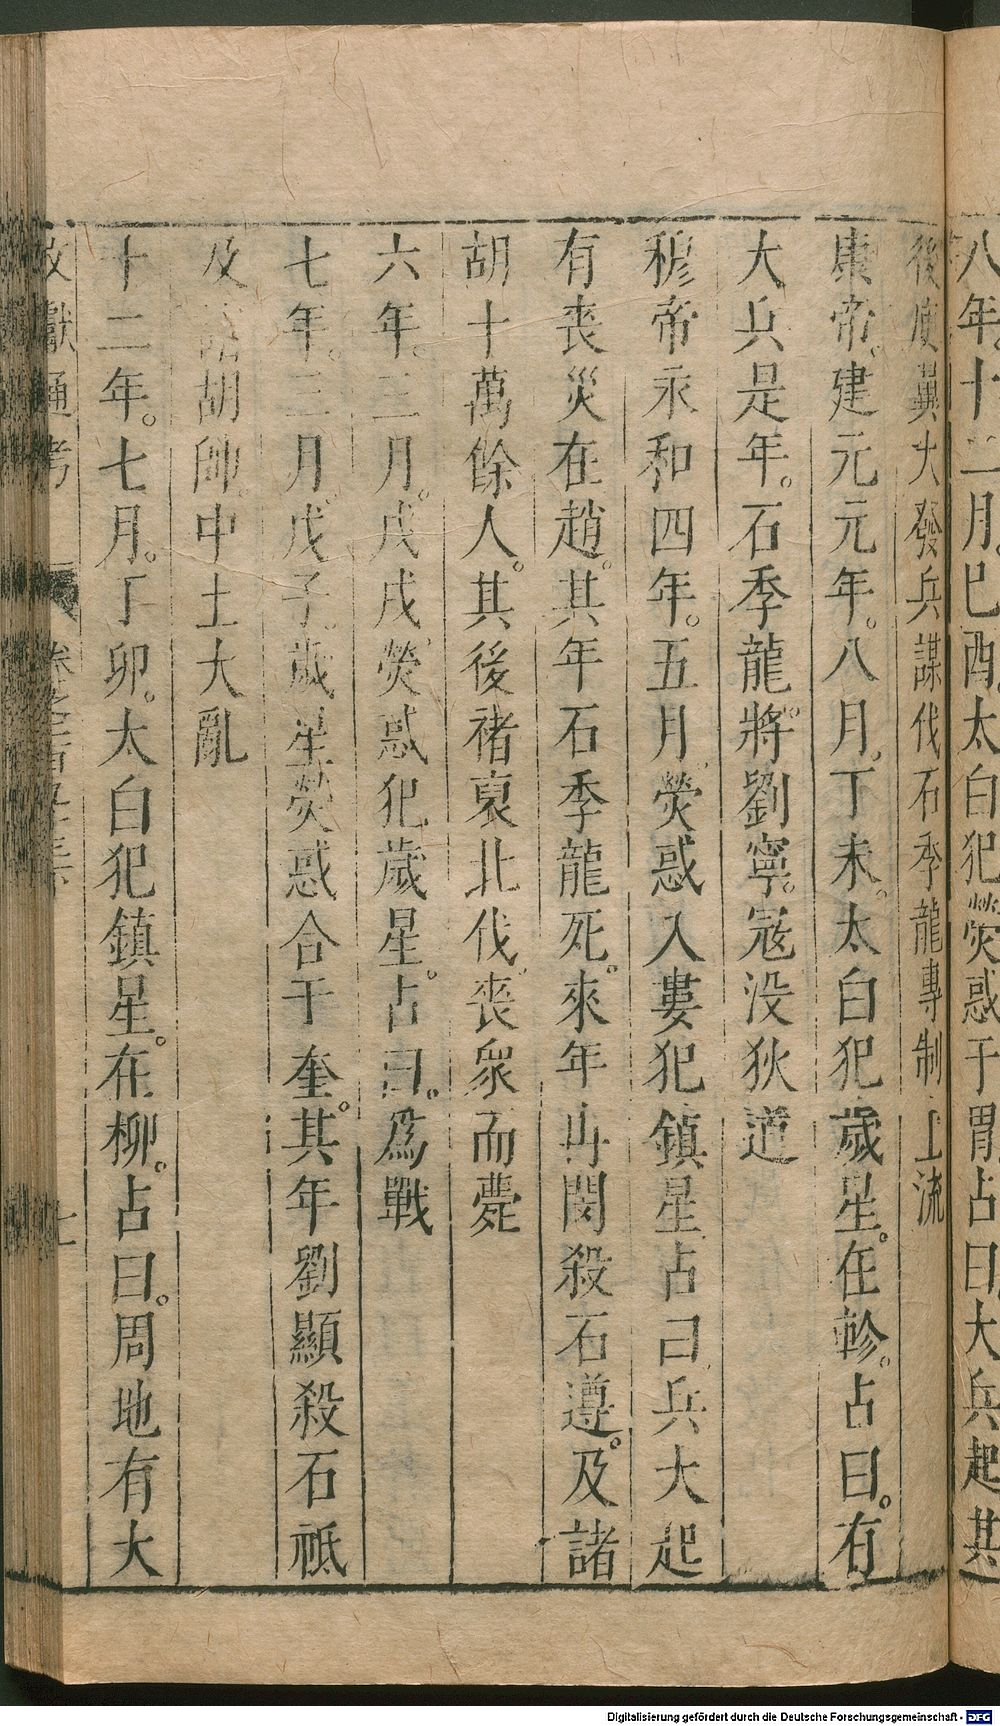 八年。十二月。巳酉。太白犯熒惑于胃占曰大兵起其
後庾翼大發兵謀伐石季龍專制上流
康帝。建元元年。八月。丁未。太白犯歲星。在軫。占曰。有
大兵是年。石季龍。將劉寧。寇没狄道
穆帝永和四年。五月。熒惑入婁犯鎮星占曰兵大起
有喪災在趙。其年石季龍死。來年冉閔殺石遵。及諸
胡十萬餘人。其後褚裒北伐。喪衆而薨
六年。三月。戊戌。熒惑犯歲星。占曰。爲戰
七年。三月。戊子。歲星熒惑合于奎。其年劉顯殺石祗
及諸胡帥。中土大亂
十二年。七月。丁卯。太白犯鎮星。在柳。占曰。周地有大
文獻通考 卷之二百 七
Digitalisierung gefördert durch die Deutsche Forschungsgemeinschaft - DFG